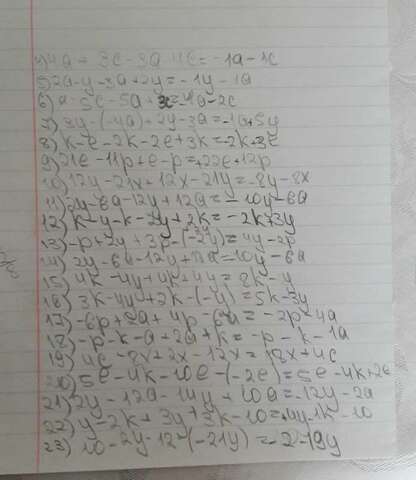 4) 4a + 3c - 3a - 4c = - 1a - 1c
5) 2a - y - 3a + 2y = - 1y - 1a
6) a - 3c - 5a + 3c = - 4a - 2c
7) 3y - (-4a) + 2y - 3a = - 1a + 5y
8) k - e - 2k - 2e + 3k = - 2k + 3e
9) 21e - 11p + e - p = + 22e + 12p
10) 12y - 21x + 12x - 21y = - 8y - 8x
11) 2y - 6a - 12y + 12a = - 10y - 6a
12) k - y - k - 2y + 2k = - 2k + 3y
13) - p + 2y + 3p - (-2y) = 4y - 2p
14) 2y - 6a - 12y + 12a = 10y - 6a
15) 4k - 4y + 4k + 4y = 8k - y
16) 3k - 4y + 2k - (-y) = 5k - 3y
17) - 6p + 2a + 4p - 6a = - 2p - 4a
18) - p - k - a + 2a + k = - p - k - 1a
19) 4c - 8x + 2x - 12x = 18x + 4c
20) 5e - 4k - 10e - (-2e) = 5e - 4k + 2e
21) 2y - 12a - 14y + 10a = - 12y - 2a
22) y - 2k + 3y + 3k - 10 = 4y - 1k - 10
23) 10 - 2y - 12 - (-21y) = - 2 - 19y